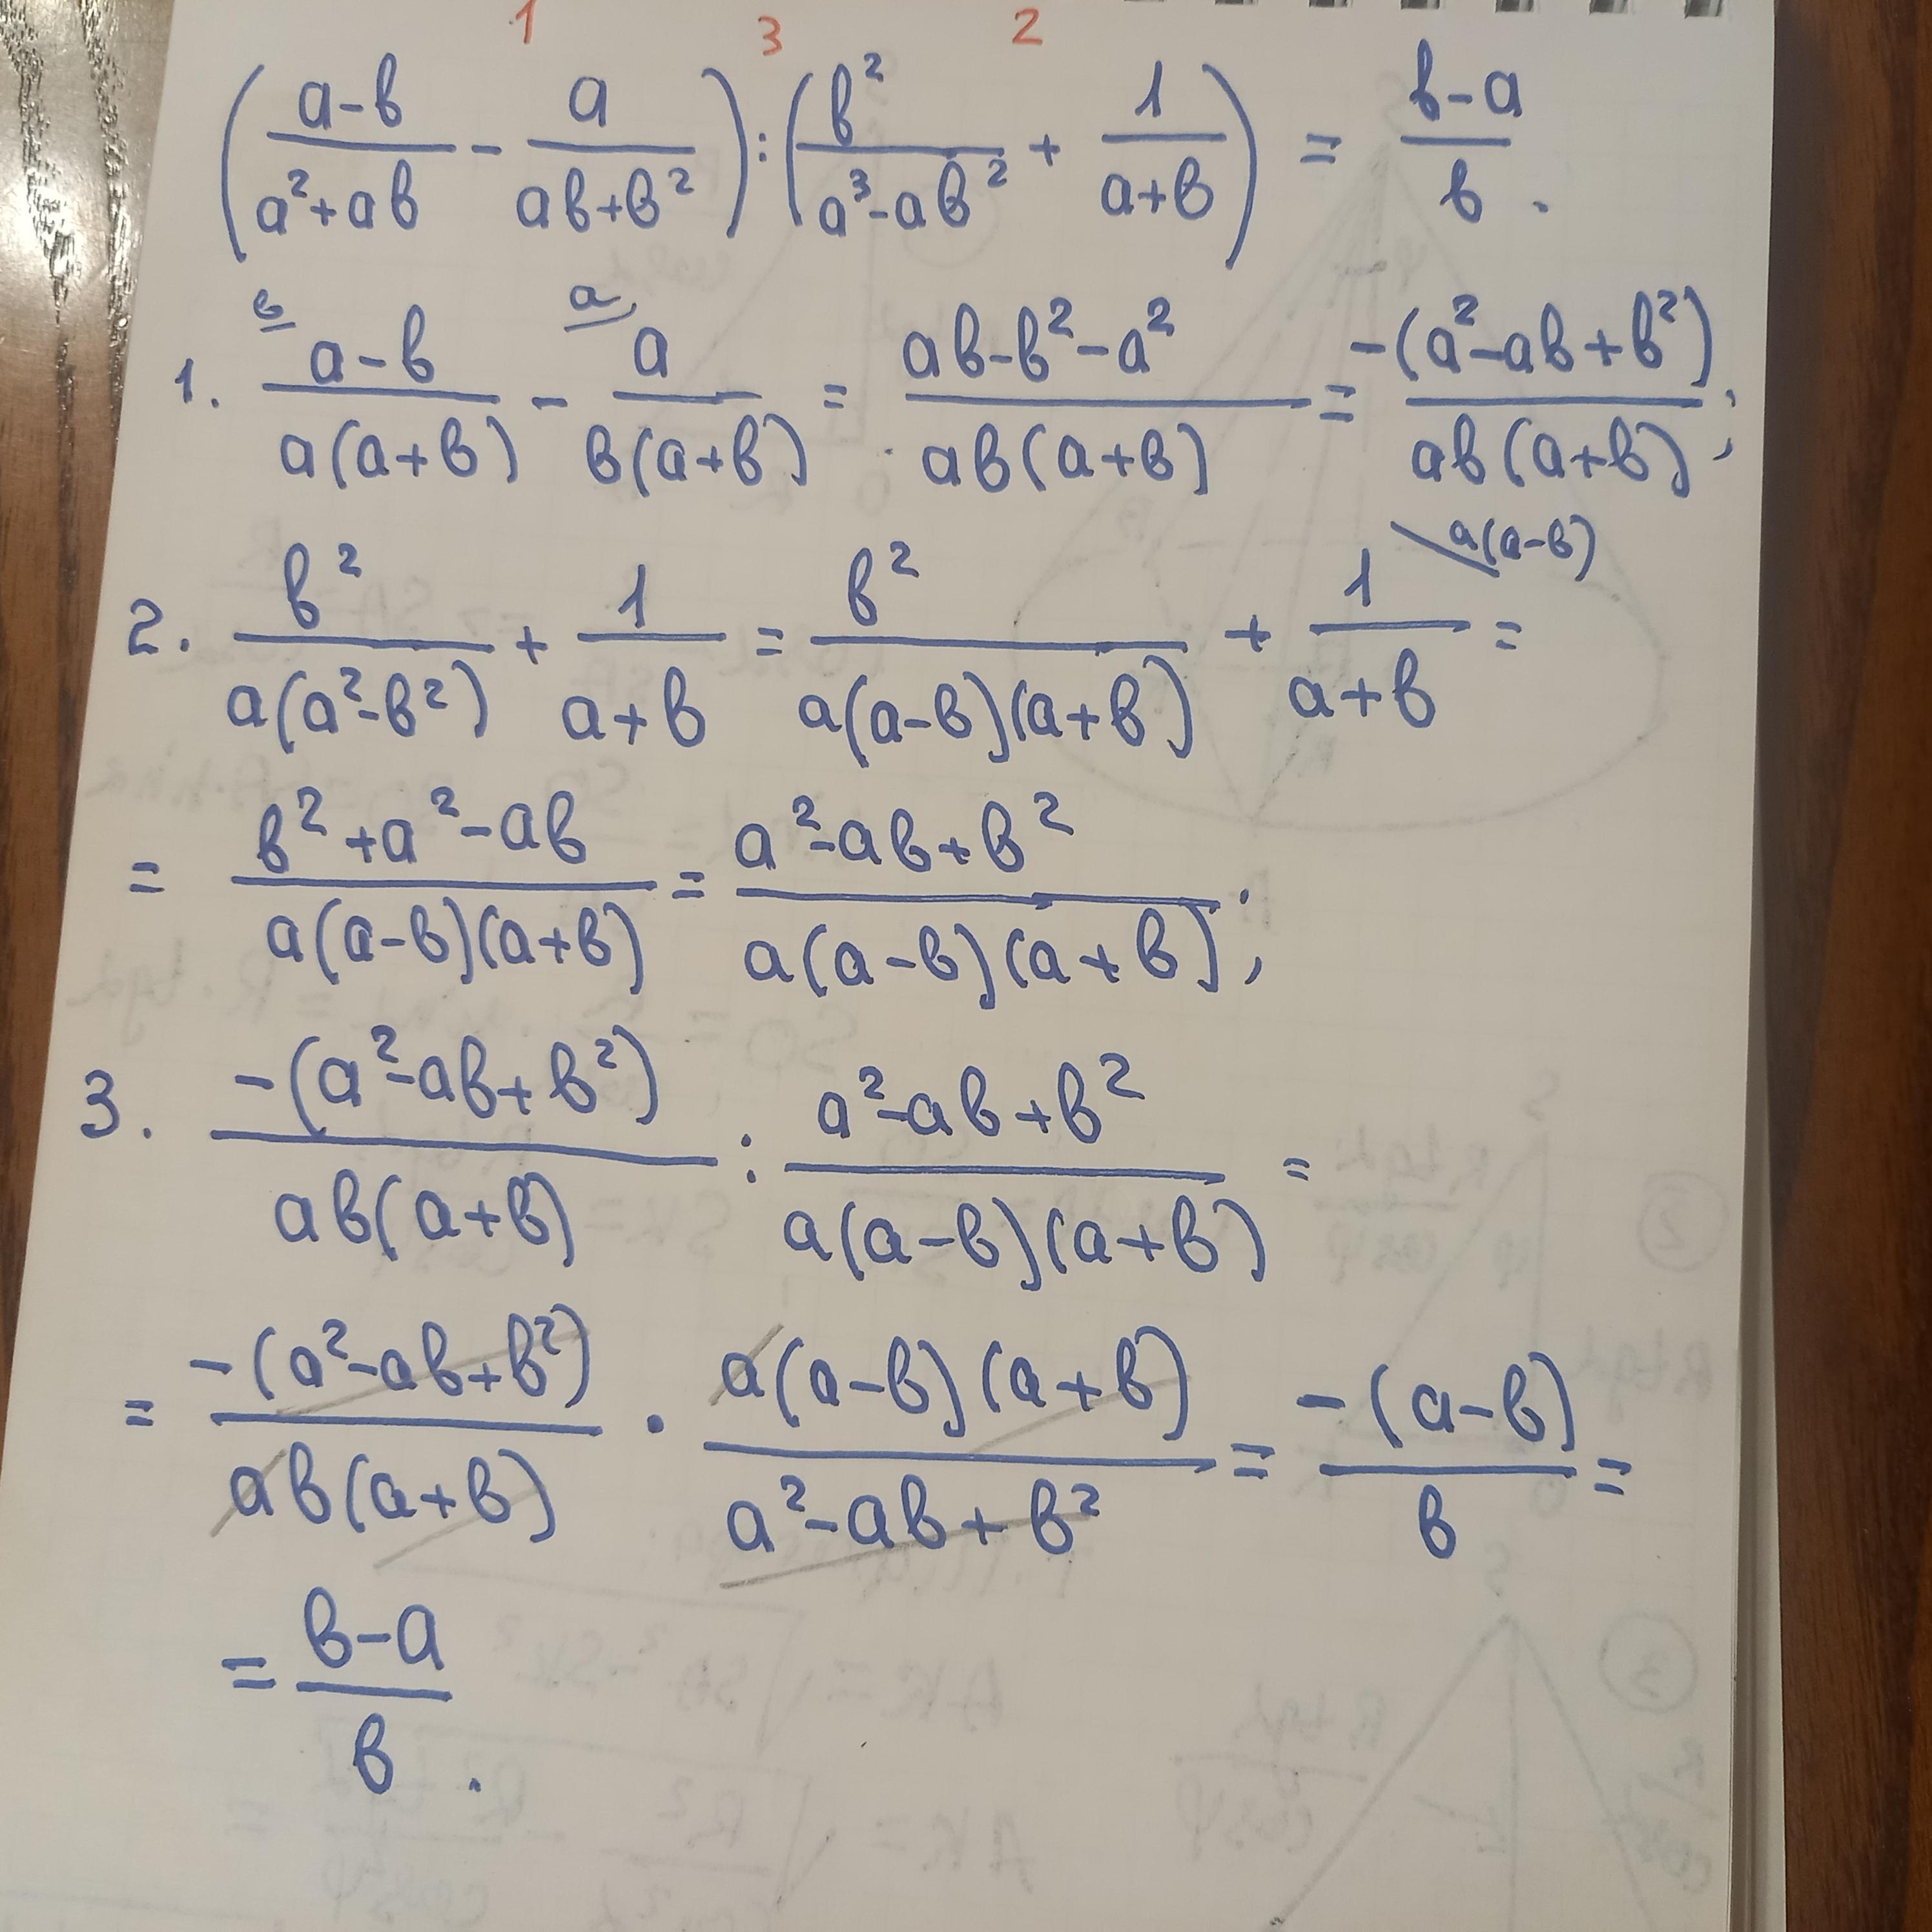 1 3 2
(a-b/a²+ab - a/ab+b²) : (b²/a³-ab² + 1/a+b) = b-a/b.
1. ᵇ a-b/a(a+b) - ᵃ a/b(a+b) = ab-b²-a²/ab(a+b) = -(a²-ab+b²)/ab(a+b);
2. b²/a(a²-b²) + 1/a+b = b²/a(a-b)(a+b) + 1\a(a-b)/a+b =
= b²+a²-ab/a(a-b)(a+b) = a²-ab+b²/a(a-b)(a+b);
3. -(a²-ab+b²)/ab(a+b) : a²-ab+b²/a(a-b)(a+b) =
= -(a²-ab+b²)/ab(a+b) · a(a-b)(a+b)/a²-ab+b² = -(a-b)/b =
= b-a/b.